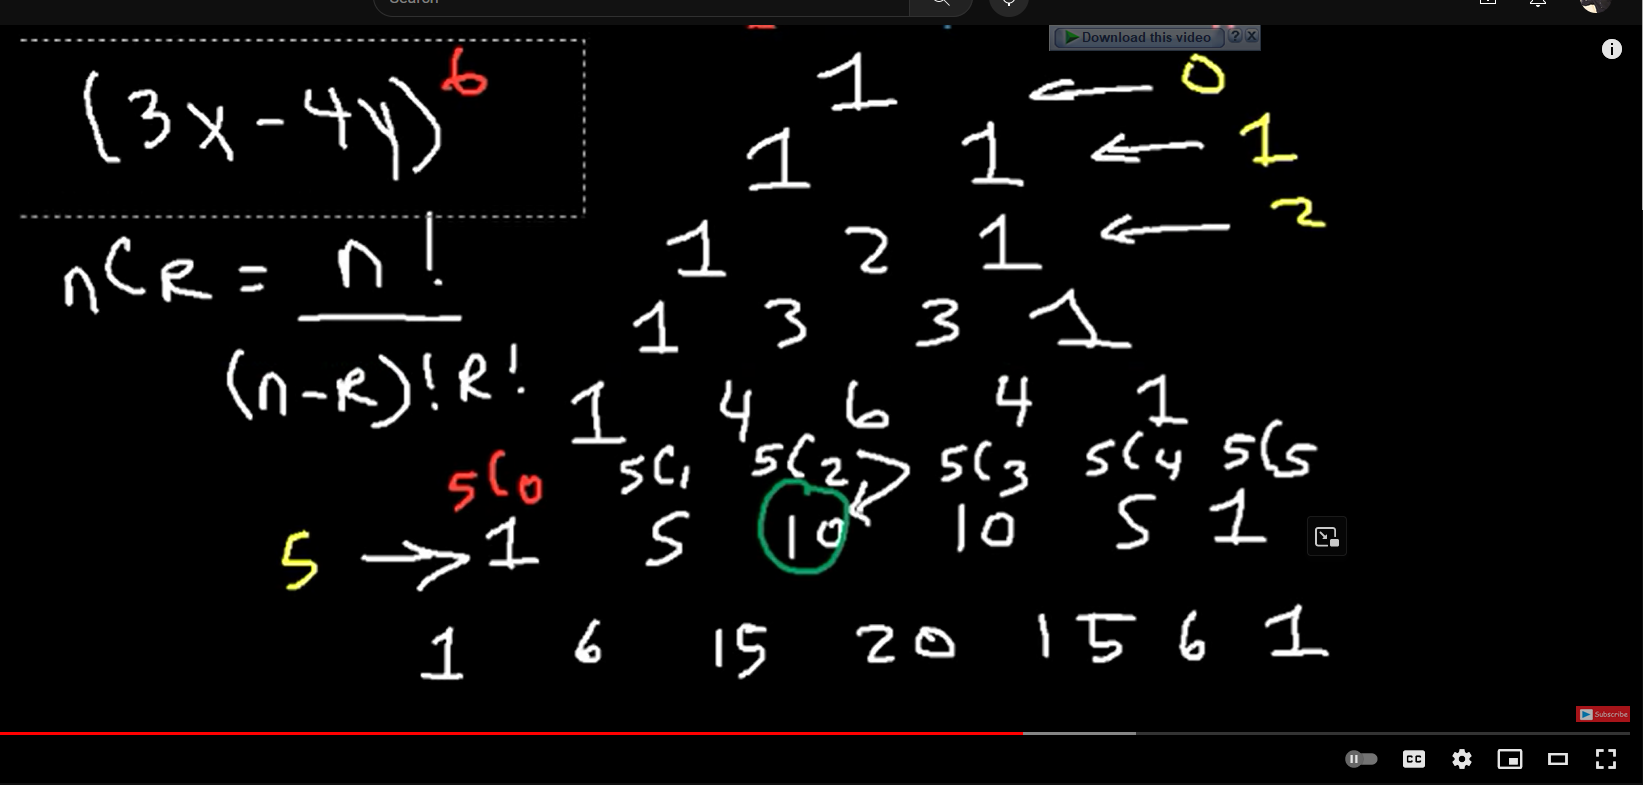 Search
Download this video ? X
(3x-4y)^6
1 ← 0
1 1 ← 1
1 2 1 ← 2
nCR = n! / (n-R)!R!
1 3 3 1
1 4 6 4 1
5C0 5C1 5C2 5C3 5C4 5C5
5 → 1 5 10 10 5 1
1 6 15 20 15 6 1
Subscribe
CC